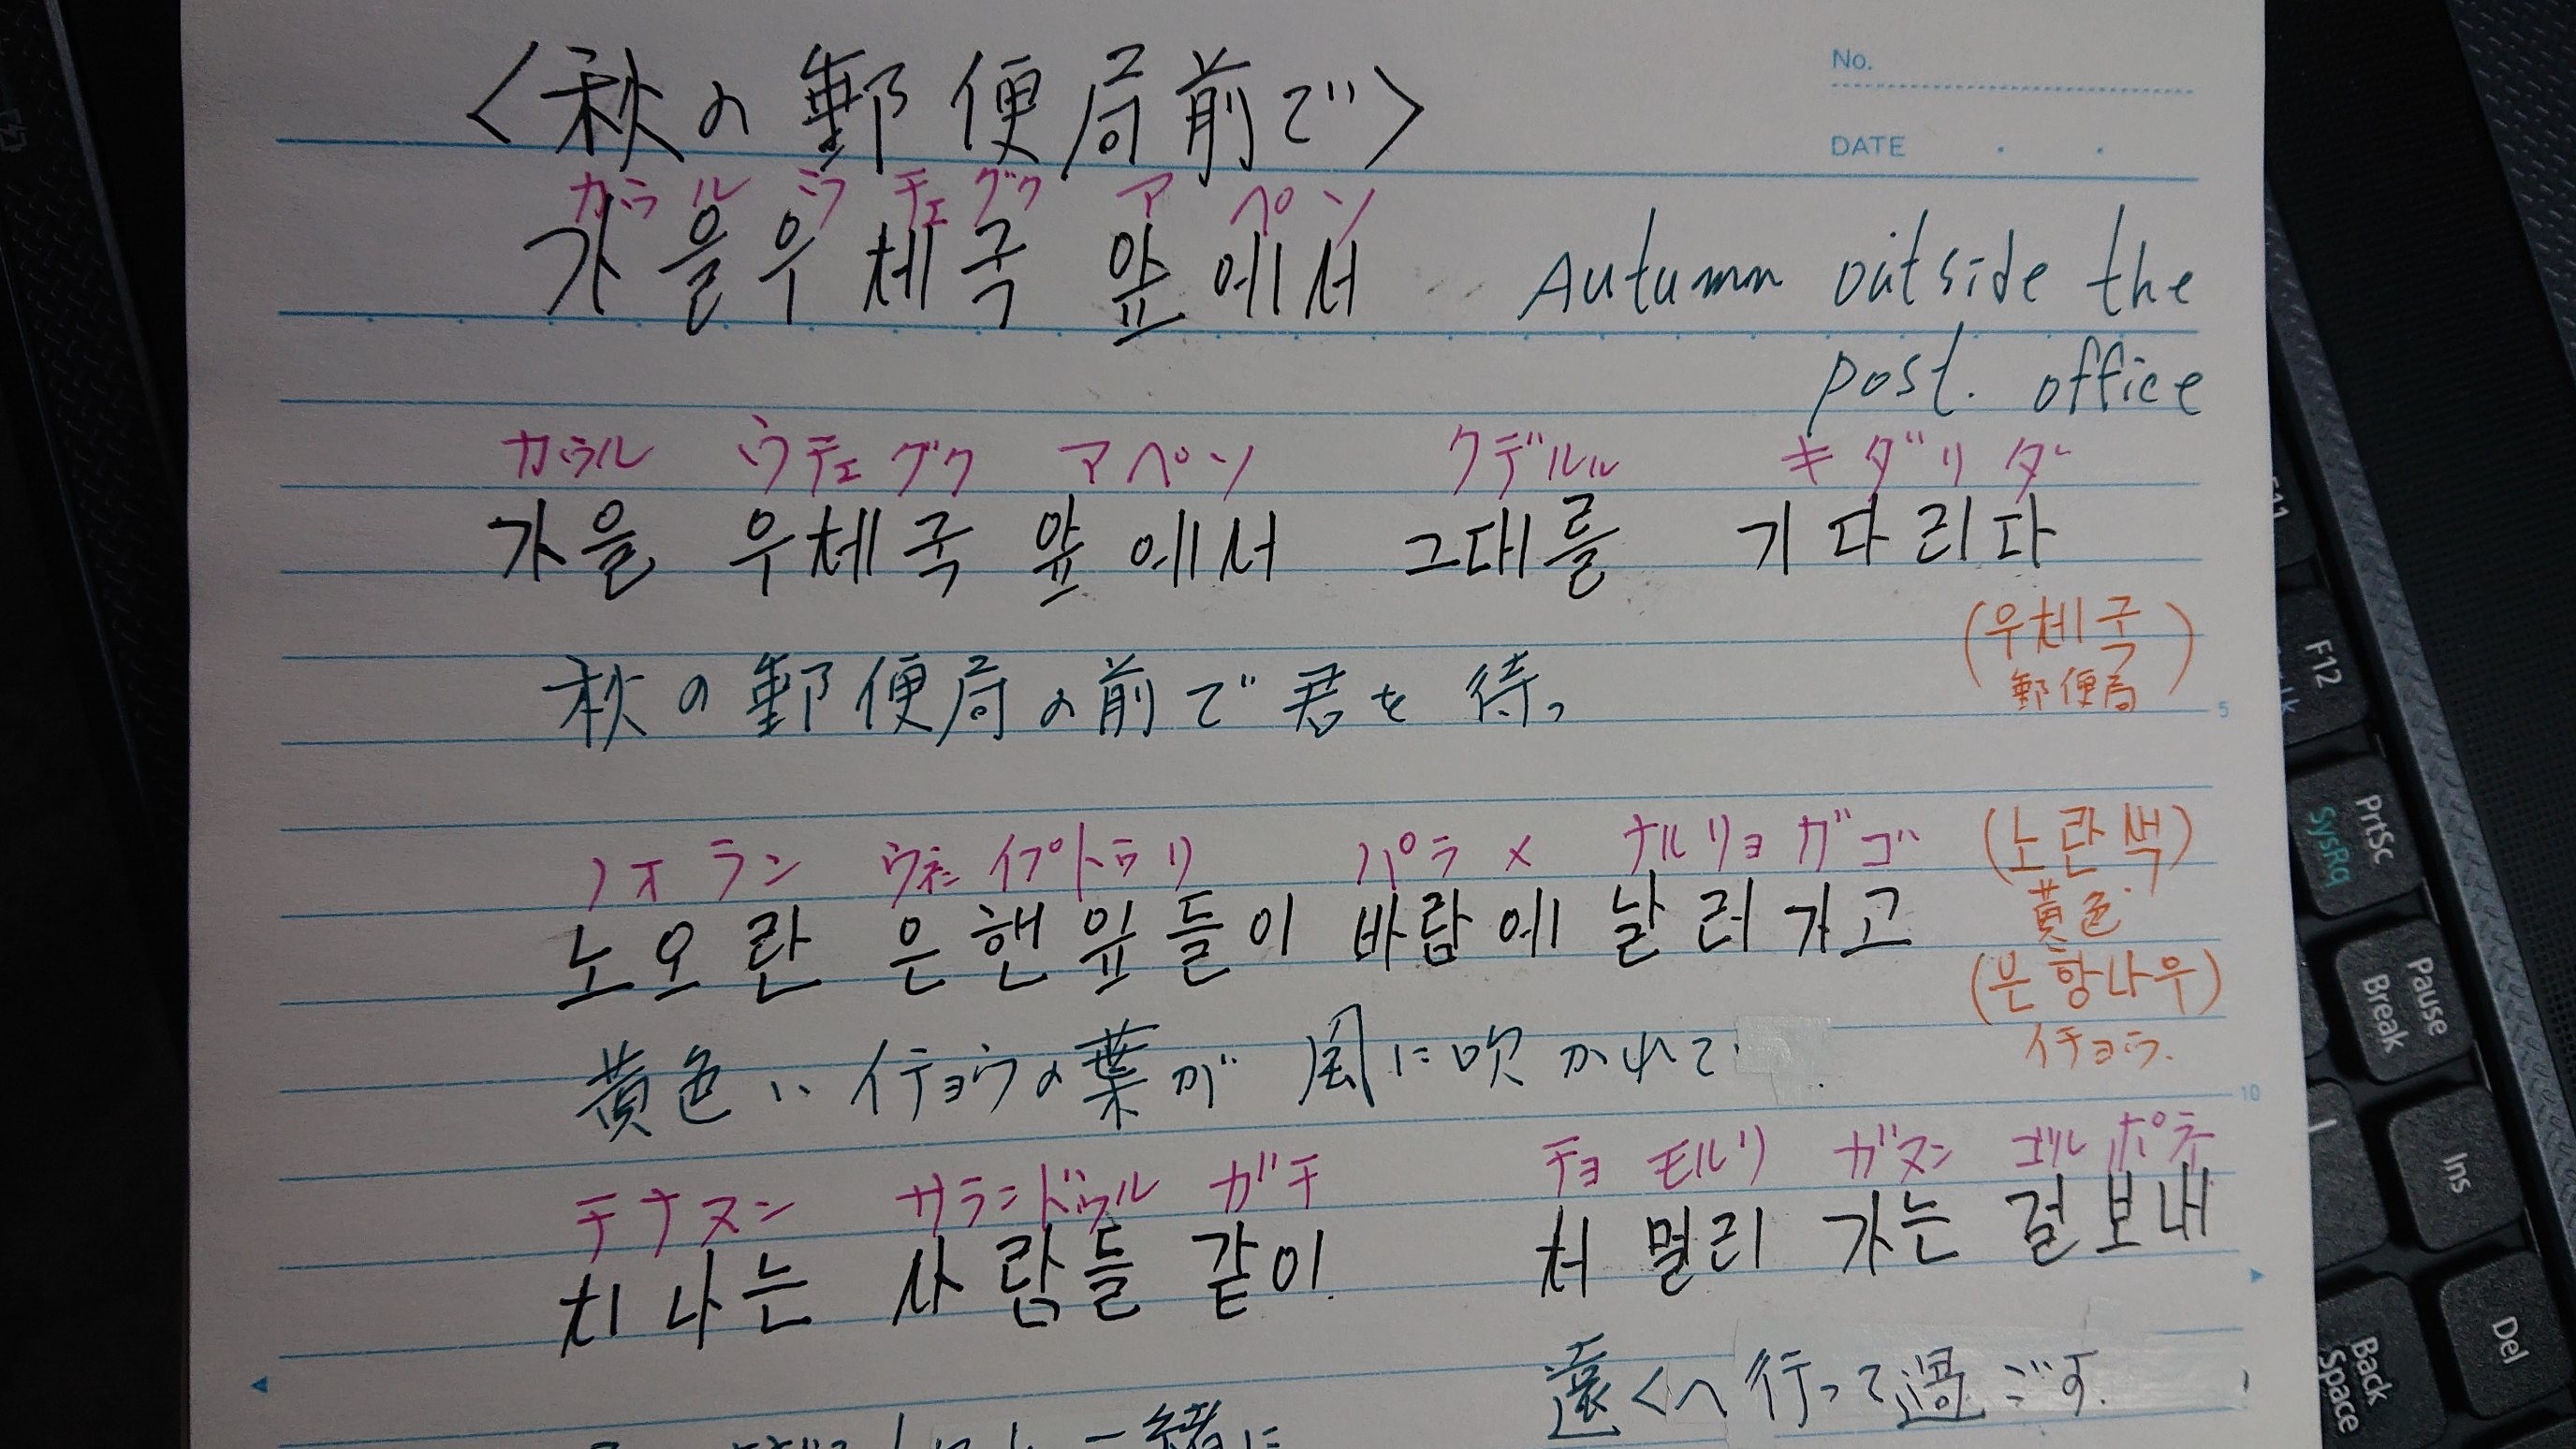 〈秋の郵便局前で〉
No.
DATE
カウル ウ チェグク アペソ
가을우체국 앞에서 Autumn outside the
post. office
カウル ウチェグク アペソ クデルル キダリダ
가을 우체국 앞에서 그대를 기다리다
(우체국
郵便局)
秋の郵便局の前で君を待つ
5
ノオラン ウネンイプトゥリ パラメ ナルリョガゴ (노란색)
노오란 은행잎들이 바람에 날려가고 黄色
(은행나무)
黄色いイチョウの葉が風に吹かれて イチョウ.
10
チナヌン サラムドゥル ガチ チョ モルリ ガヌン ゴル ポネ
지나는 사람들 같이 저 멀리 가는 걸 보내
遠くへ行って過ごす.
一緒に
F11
F12
PrtSc
SysRq
Pause
Break
Ins
Del
Back
Space